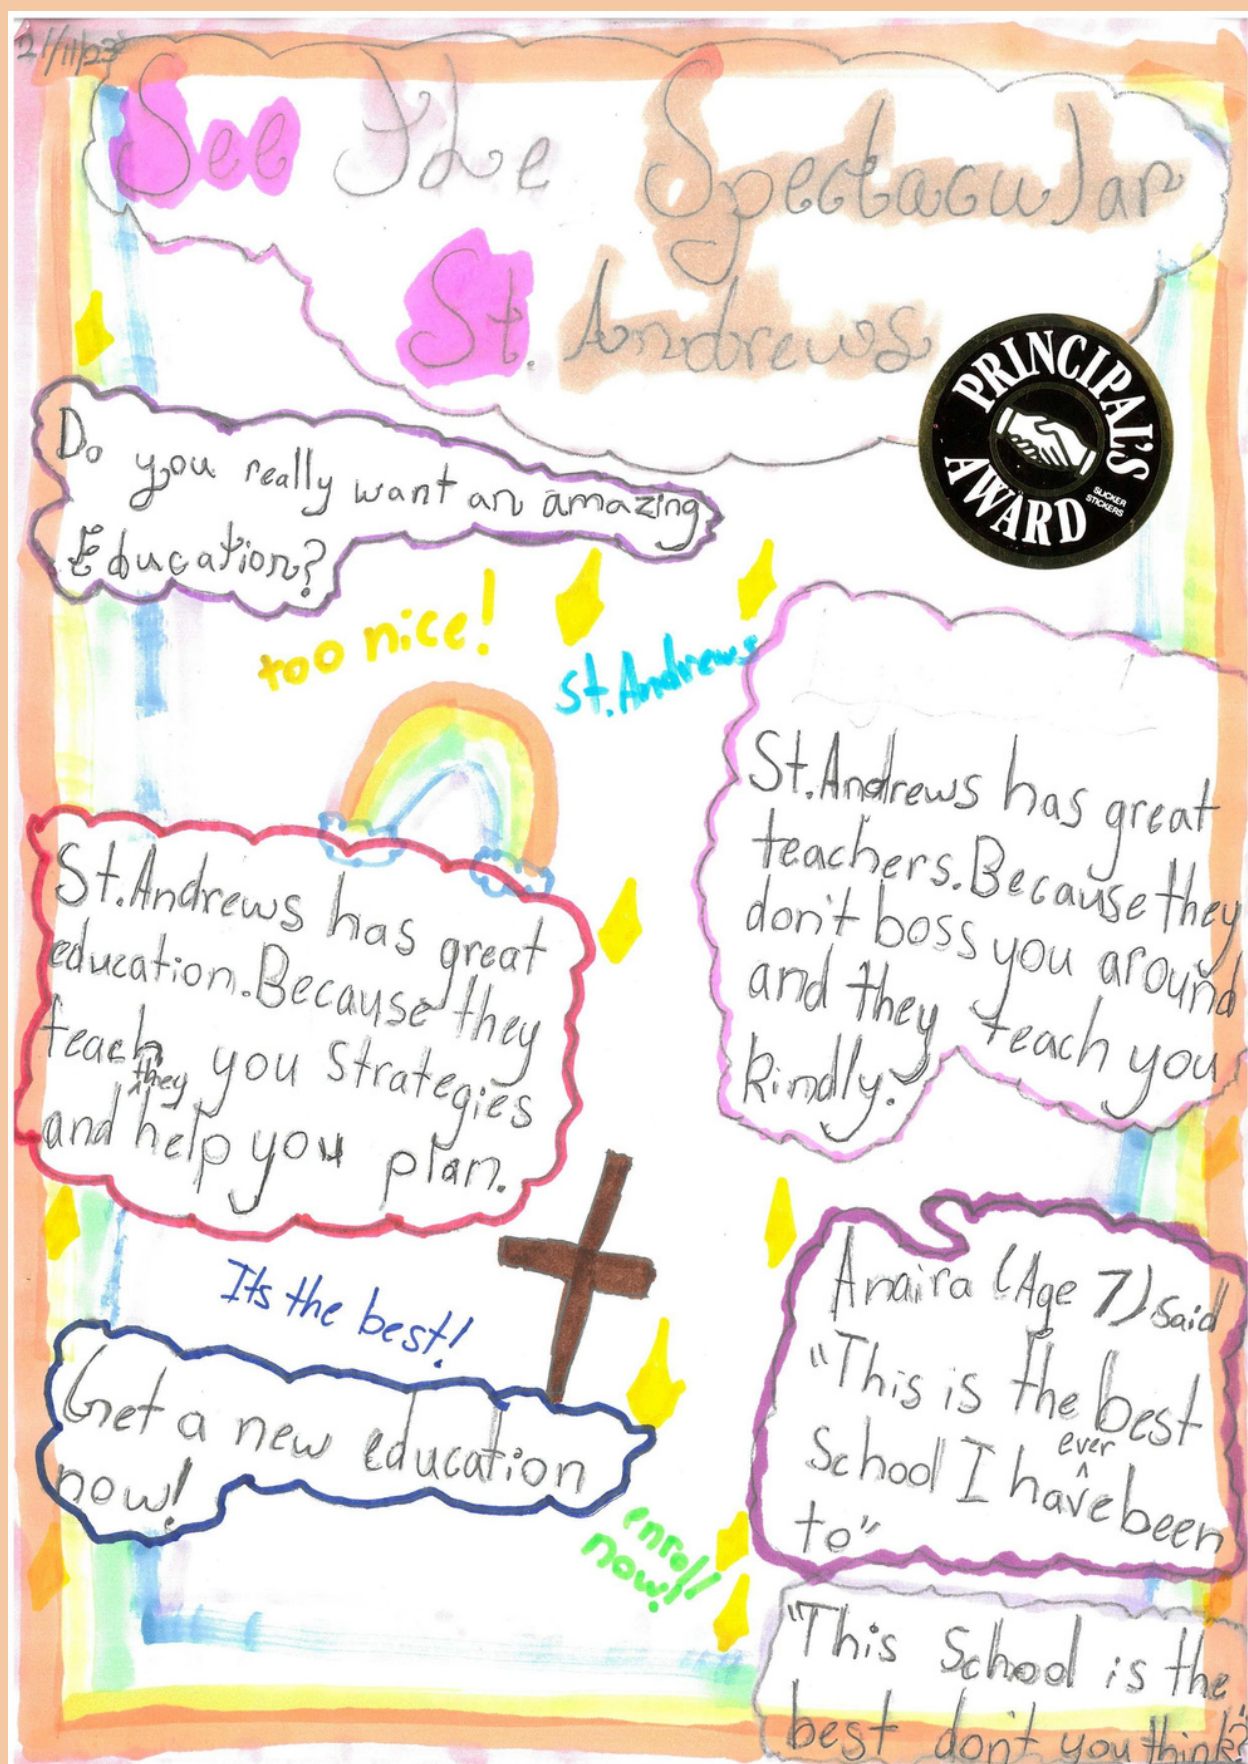 21/11/23
See The Spectacular
St. Andrews
PRINCIPAL'S
AWARD
SLICKER
STICKERS
Do you really want an amazing
Education?
too nice!
St. Andrews
St. Andrews has great
teachers. Because they
don't boss you around
and they teach you
kindly.
St. Andrews has great
education. Because they
teach you strategies
and they help you plan.
Its the best!
Get a new education
now!
enroll
now!
Anaira (Age 7) said
"This is the best
School I have ever been
to"
"This School is the
best don't you think?"